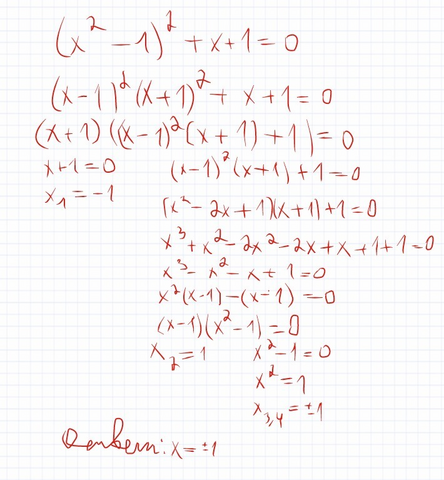 (x² - 1)² + x + 1 = 0
(x - 1)² (x + 1)² + x + 1 = 0
(x + 1) ((x - 1)² (x + 1) + 1) = 0
x + 1 = 0
x₁ = -1
(x - 1)² (x + 1) + 1 = 0
(x² - 2x + 1)(x + 1) + 1 = 0
x³ + x² - 2x² - 2x + x + 1 + 1 = 0
x³ - x² - x + 1 = 0
x² (x - 1) - (x - 1) = 0
(x - 1) (x² - 1) = 0
x₂ = 1
x² - 1 = 0
x² = 1
x₃,₄ = ±1
Ответ: x = ±1